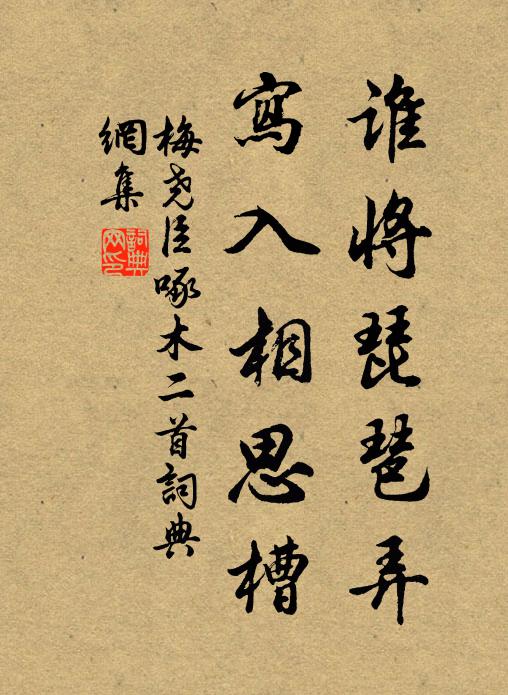 谁將琵琶弄
寫入相思槽
梅尧臣啄木二首詞典
網集
詞典
网印